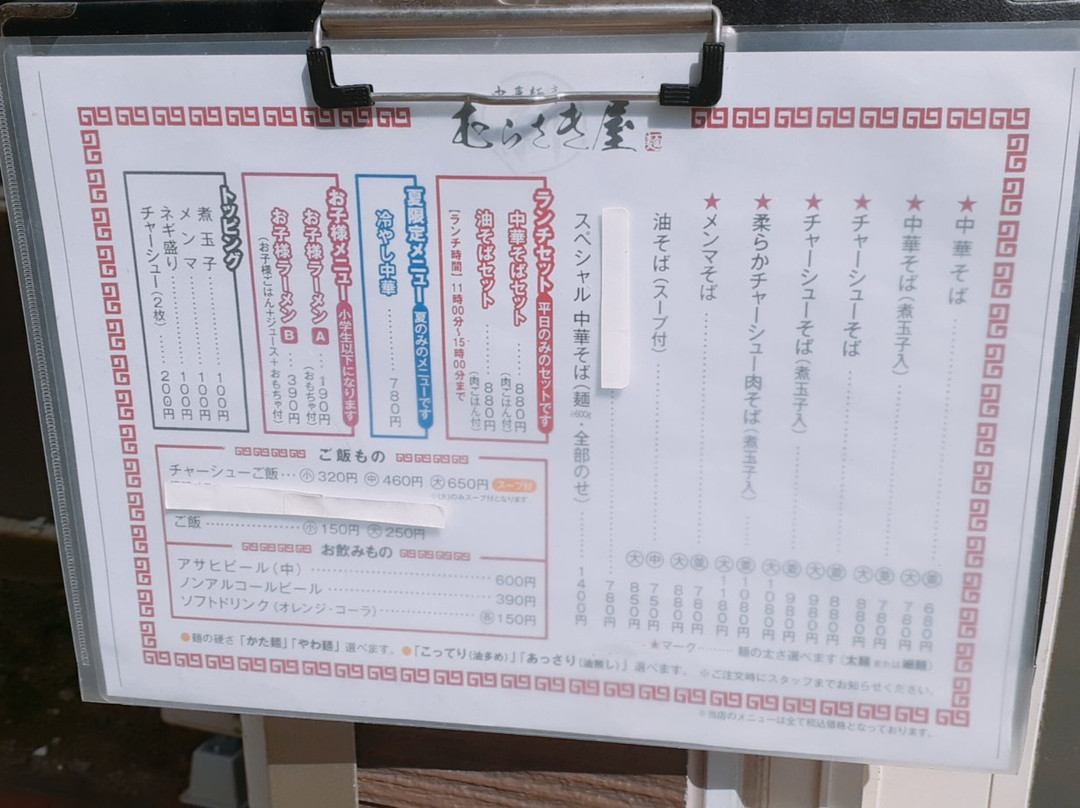 むらさき屋 麺
★中華そば 並 680円 大 780円
★中華そば(煮玉子入) 並 780円 大 880円
★チャーシューそば 並 880円 大 980円
★チャーシューそば(煮玉子入) 並 980円 大 1080円
★柔らかチャーシュー肉そば(煮玉子入) 並 1080円 大 1180円
★メンマそば 並 780円 大 880円
油そば(スープ付) 中 750円 大 850円
780円
スペシャル 中華そば(麺 ※600g・全部のせ) 1400円
ランチセット 平日のみのセットです
中華そばセット 880円
(肉ごはん付)
油そばセット 880円
(肉ごはん付)
【ランチ時間】11時00分〜15時00分まで
夏限定メニュー 夏のみのメニューです
冷やし中華 780円
お子様メニュー 小学生以下になります
お子様ラーメン A 190円
(おもちゃ付)
お子様ラーメン B 390円
(お子様ごはん+ジュース+おもちゃ付)
トッピング
煮玉子 100円
メンマ 100円
ネギ盛り 100円
チャーシュー(2枚) 200円
ご飯もの
チャーシューご飯 小 320円 中 460円 大 650円 スープ付
※(大)のみスープ付となります
ご飯 小 150円 大 250円
お飲みもの
アサヒビール(中) 600円
ノンアルコールビール 390円
ソフトドリンク(オレンジ・コーラ) 各 150円
★マーク 麺の太さ選べます(太麺または細麺)
●麺の硬さ「かた麺」「やわ麺」選べます。 ●「こってり(油多め)」「あっさり(油無し)」選べます。 ※ご注文時にスタッフまでお知らせください。
※当店のメニューは全て税込価格となっております。